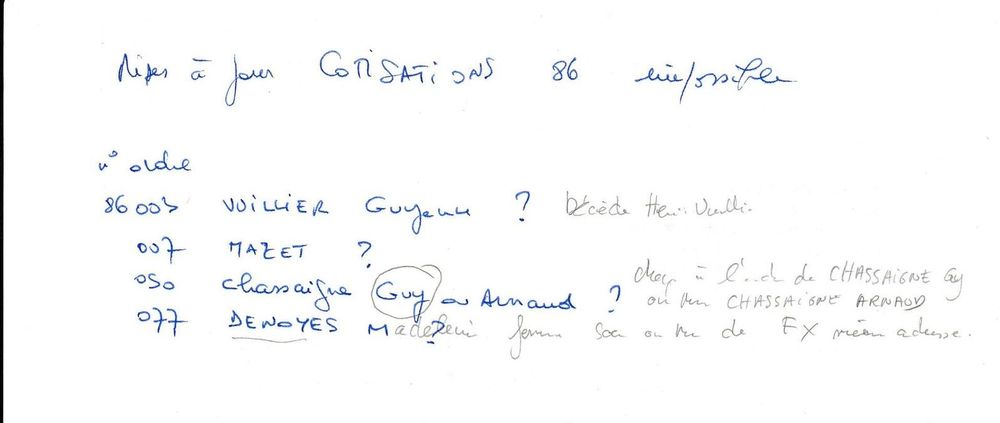 Mises à jour COTISATIONS 86 impossible
n° ordre
86 003 VUILLIER Guyenne ? Décédé Henri
007 MAZET ?
050 Chassaigne Guy ou Arnaud ? à de CHASSAIGNE Guy
ou CHASSAIGNE ARNAUD
077 DENOYES Madeleine ? ou de FX même adresse.